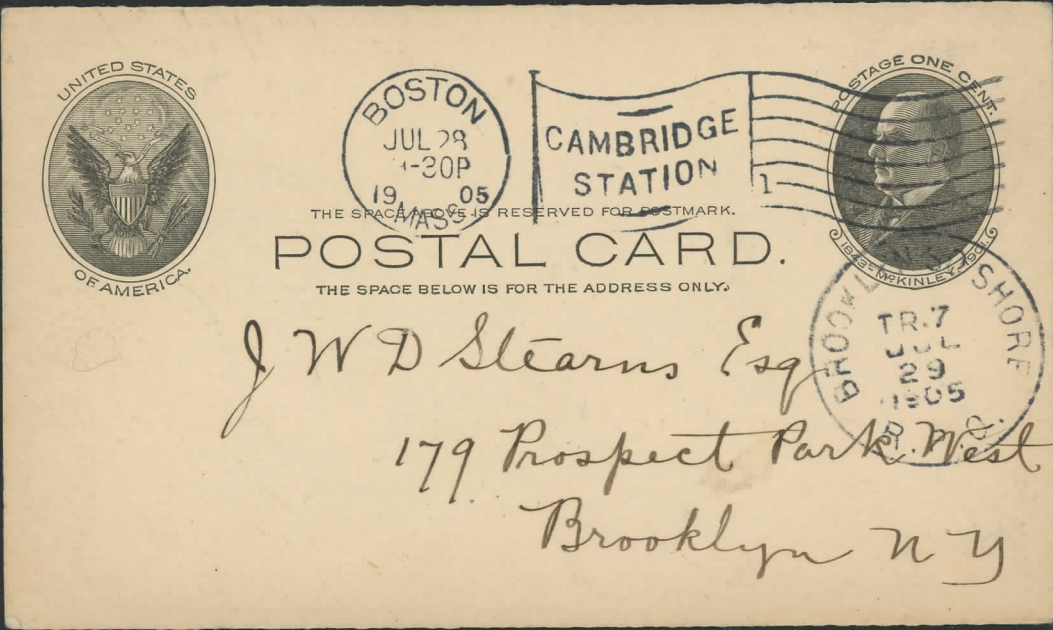 UNITED STATES
OF AMERICA.
BOSTON
JUL 28
-30P
19 05
MASS
CAMBRIDGE
STATION
1
POSTAGE ONE CENT.
1843-McKINLEY-1901.
THE SPACE ABOVE IS RESERVED FOR POSTMARK.
POSTAL CARD.
THE SPACE BELOW IS FOR THE ADDRESS ONLY.
SHORE
TR.7
JUL
29
1905
J W D Stearns Esq
179 Prospect Park West
Brooklyn N Y